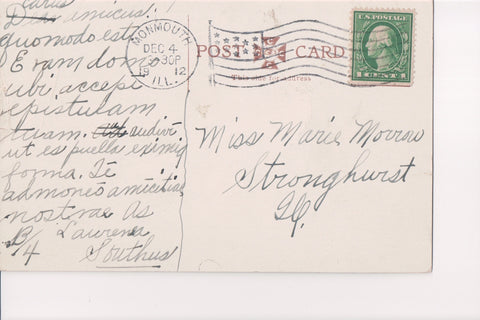 Carus
amicus:
quomodo est
Eram domo
ubi accepi
epistulam
tuam. audivi
ut es puella eximia
forma. Te
admoneo amicitiae
nostrae As
B/4 Lawrence
Southus
MONMOUTH
DEC 4
30P
19 12
ILL.
POST CARD
This side for address
U.S. POSTAGE
1 CENT 1
Miss Marie Morrow
Stronghurst
Ill.